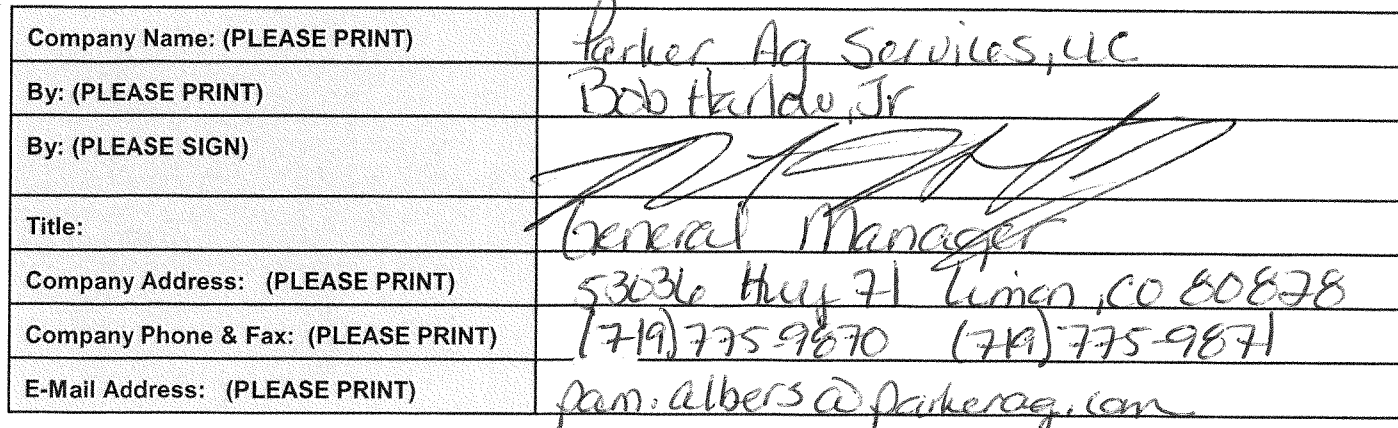 Company Name: (PLEASE PRINT) Parker Ag Services, LLC
By: (PLEASE PRINT) Bob Harlow, Jr
By: (PLEASE SIGN)
Title: General Manager
Company Address: (PLEASE PRINT) 53036 Hwy 71 Limon, CO 80828
Company Phone & Fax: (PLEASE PRINT) (719)775-9870 (719)775-9871
E-Mail Address: (PLEASE PRINT) pam.albers@parkerag.com